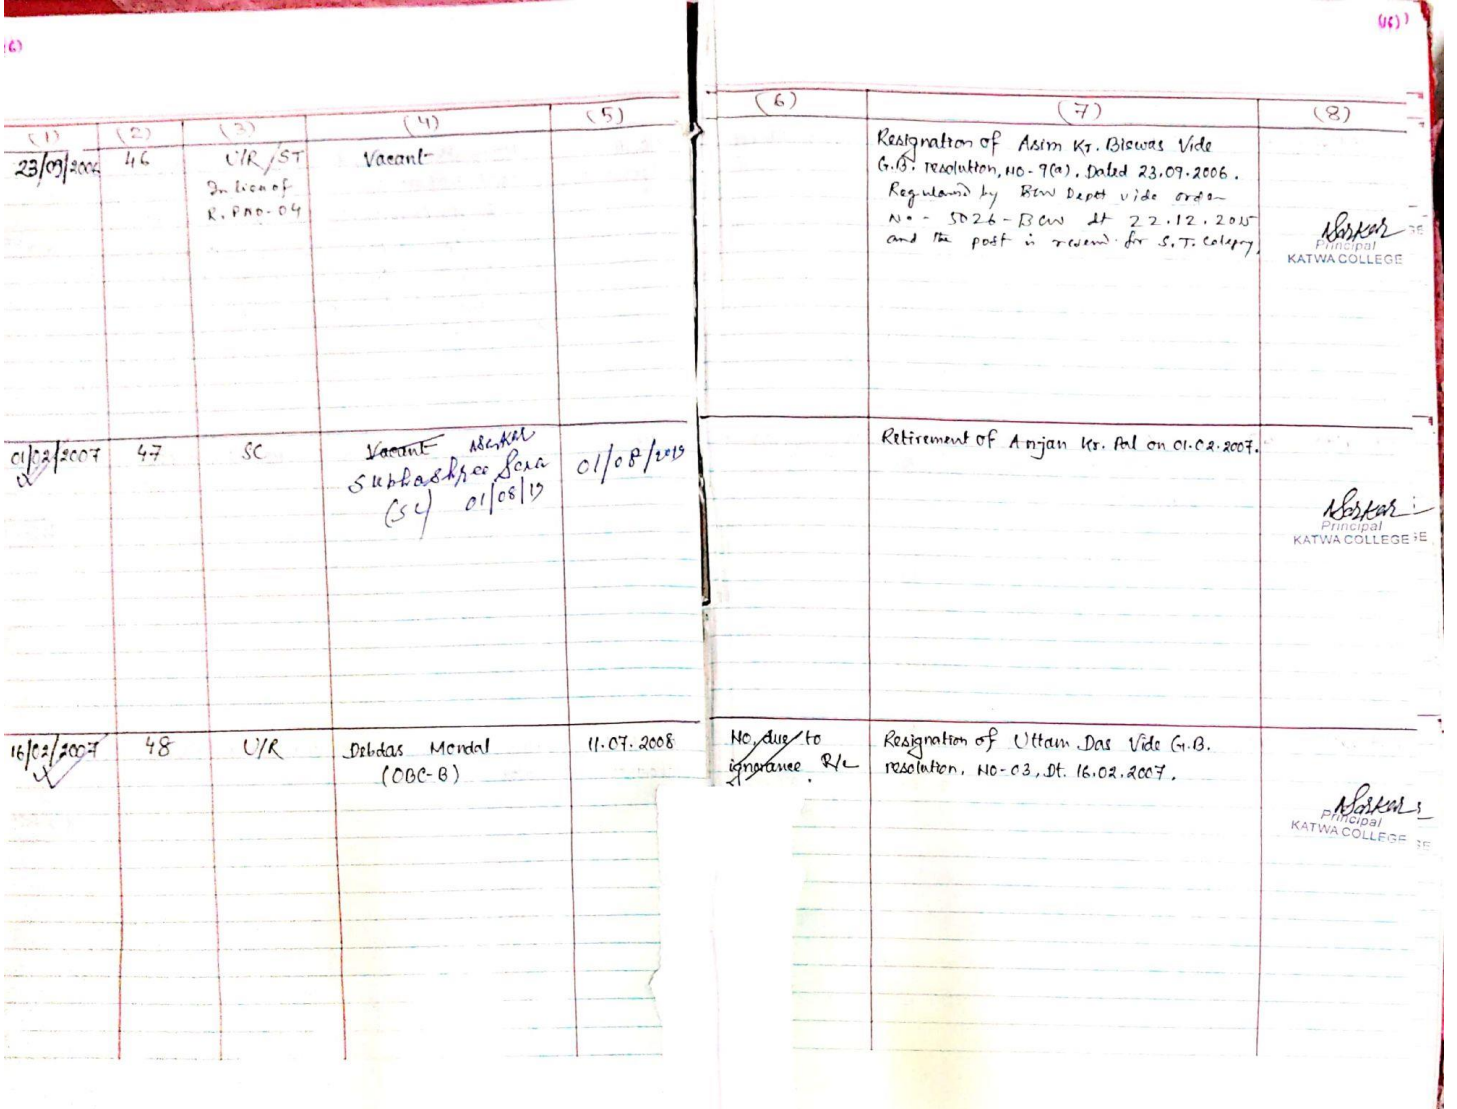 (16)
(1) (2) (3) (4) (5) (6) (7) (8)
23/09/2006 46 U/R/ST Vacant
In lieu of
R.P. NO-04
Resignation of Asim Kr. Biswas Vide
G.B. resolution, NO-9(a), Dated 23.09.2006.
by BCW Deptt vide order
No - 5026-BCW dt 22.12.2015
and the post is for S.T. Category.
Sarkar
Principal
KATWA COLLEGE
01/02/2007 47 SC Vacant Sarkar
Subhashree Sora 01/08/2019
(SC) 01/08/19
Retirement of Anjan Kr. Pal on 01.02.2007.
Sarkar
Principal
KATWA COLLEGE
16/02/2007 48 U/R Debdas Mondal 11.07.2008
(OBC-B)
No, due to
ignorance
Resignation of Uttam Das Vide G.B.
resolution, NO-03, Dt. 16.02.2007.
Sarkar
Principal
KATWA COLLEGE